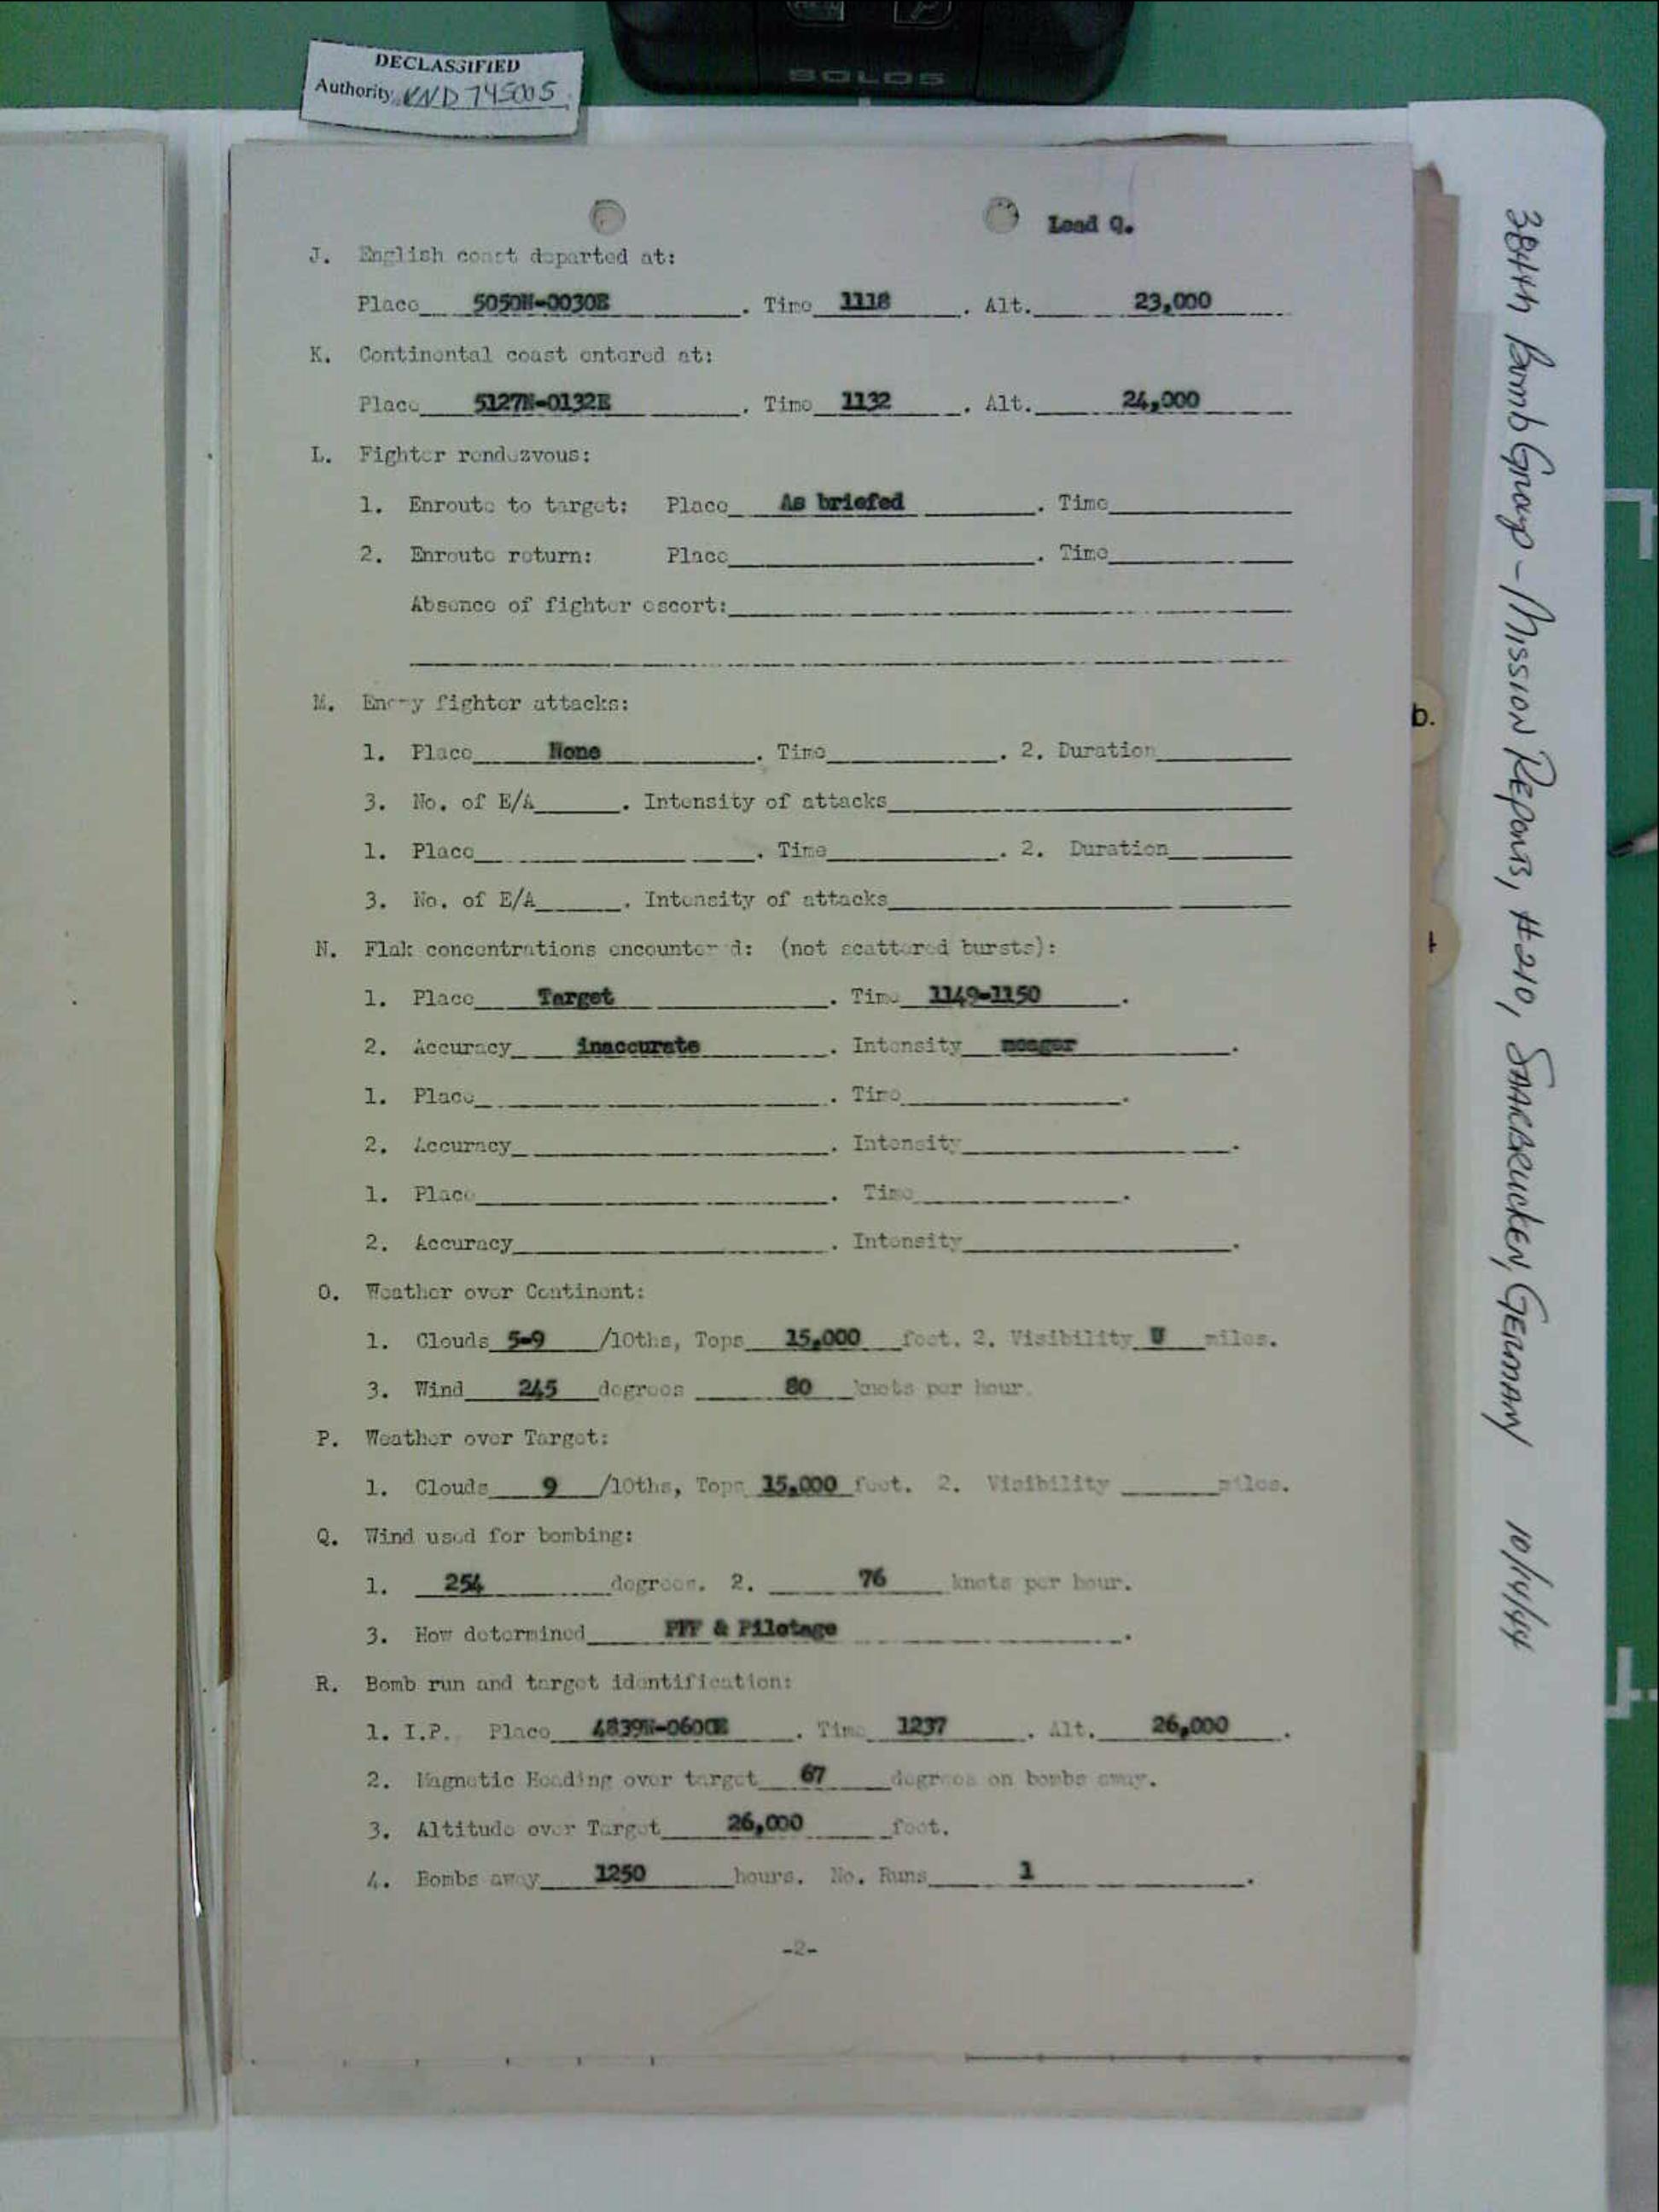 DECLASSIFIED
Authority NND 745005
SOLOS
Lead Q.
J. English coast departed at:
Place 5050N-0030E . Time 1118 . Alt. 23,000
K. Continental coast entered at:
Place 5127N-0132E . Time 1132 . Alt. 24,000
L. Fighter rendezvous:
1. Enroute to target: Place As briefed . Time
2. Enroute return: Place . Time
Absence of fighter escort:
M. Enemy fighter attacks:
1. Place None . Time . 2. Duration
3. No. of E/A . Intensity of attacks
1. Place . Time . 2. Duration
3. No. of E/A . Intensity of attacks
N. Flak concentrations encountered: (not scattered bursts):
1. Place Target . Time 1149-1150 .
2. Accuracy inaccurate . Intensity meager .
1. Place . Time .
2. Accuracy . Intensity .
1. Place . Time .
2. Accuracy . Intensity .
O. Weather over Continent:
1. Clouds 5-9 /10ths, Tops 15,000 feet. 2. Visibility U miles.
3. Wind 245 degrees 80 knots per hour.
P. Weather over Target:
1. Clouds 9 /10ths, Tops 15,000 feet. 2. Visibility miles.
Q. Wind used for bombing:
1. 254 degrees. 2. 76 knots per hour.
3. How determined PFF & Pilotage .
R. Bomb run and target identification:
1. I.P. Place 4839N-0600E . Time 1237 . Alt. 26,000 .
2. Magnetic Heading over target 67 degrees on bombs away.
3. Altitude over Target 26,000 feet.
4. Bombs away 1250 hours. No. Runs 1 .
-2-
b.
384th Bomb Group - Mission Reports, #210, SAARBRUCKEN, GERMANY 10/14/44